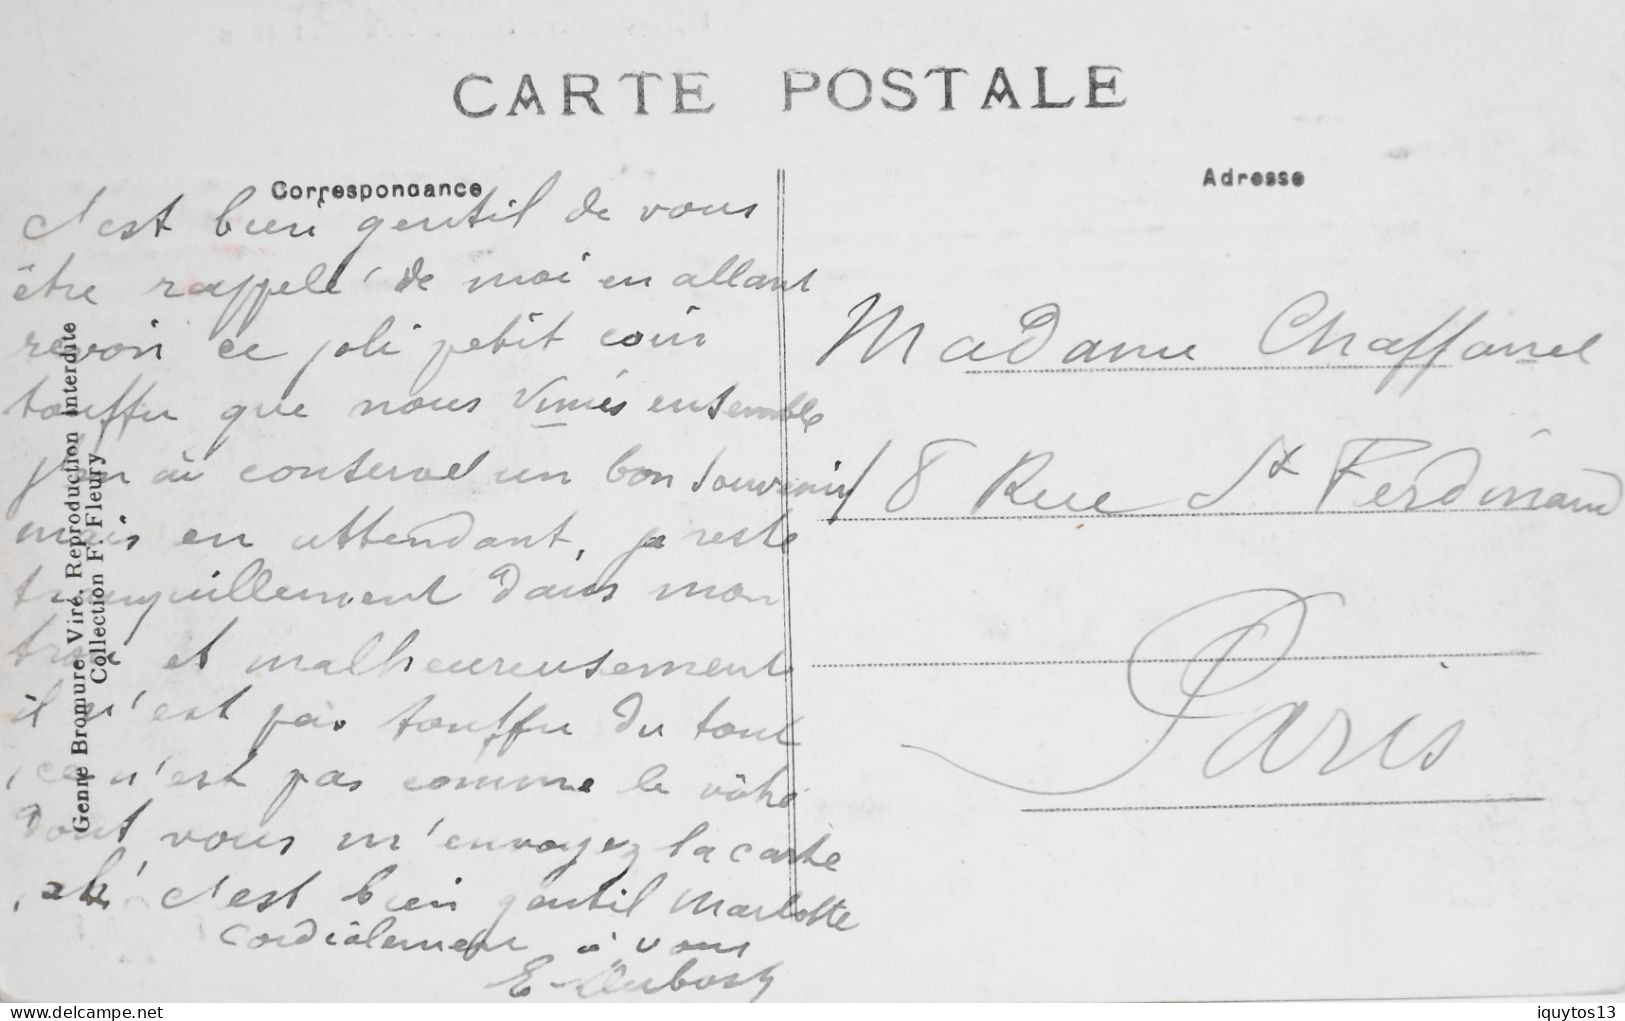 CARTE POSTALE
Correspondance
c'est bien gentil de vous
être rappelé de moi en allant
revoir ce joli petit coin
touffu que nous vimes ensemble
j'en ai conservé un bon souvenir
mais en attendant, je reste
tranquillement dans mon
trou et malheureusement
il n'est pas touffu du tout
ce n'est pas comme le vôtre
dont vous m'envoyez la carte
ah! c'est bien gentil Marlotte
cordialement à vous
E. Dubosq
Genne Bromure, Viré. Reproduction interdite
Collection F. Fleury
Adresse
Madame Chaffanel
18 Rue St Ferdinand
Paris
www.delcampe.net
iquytos13